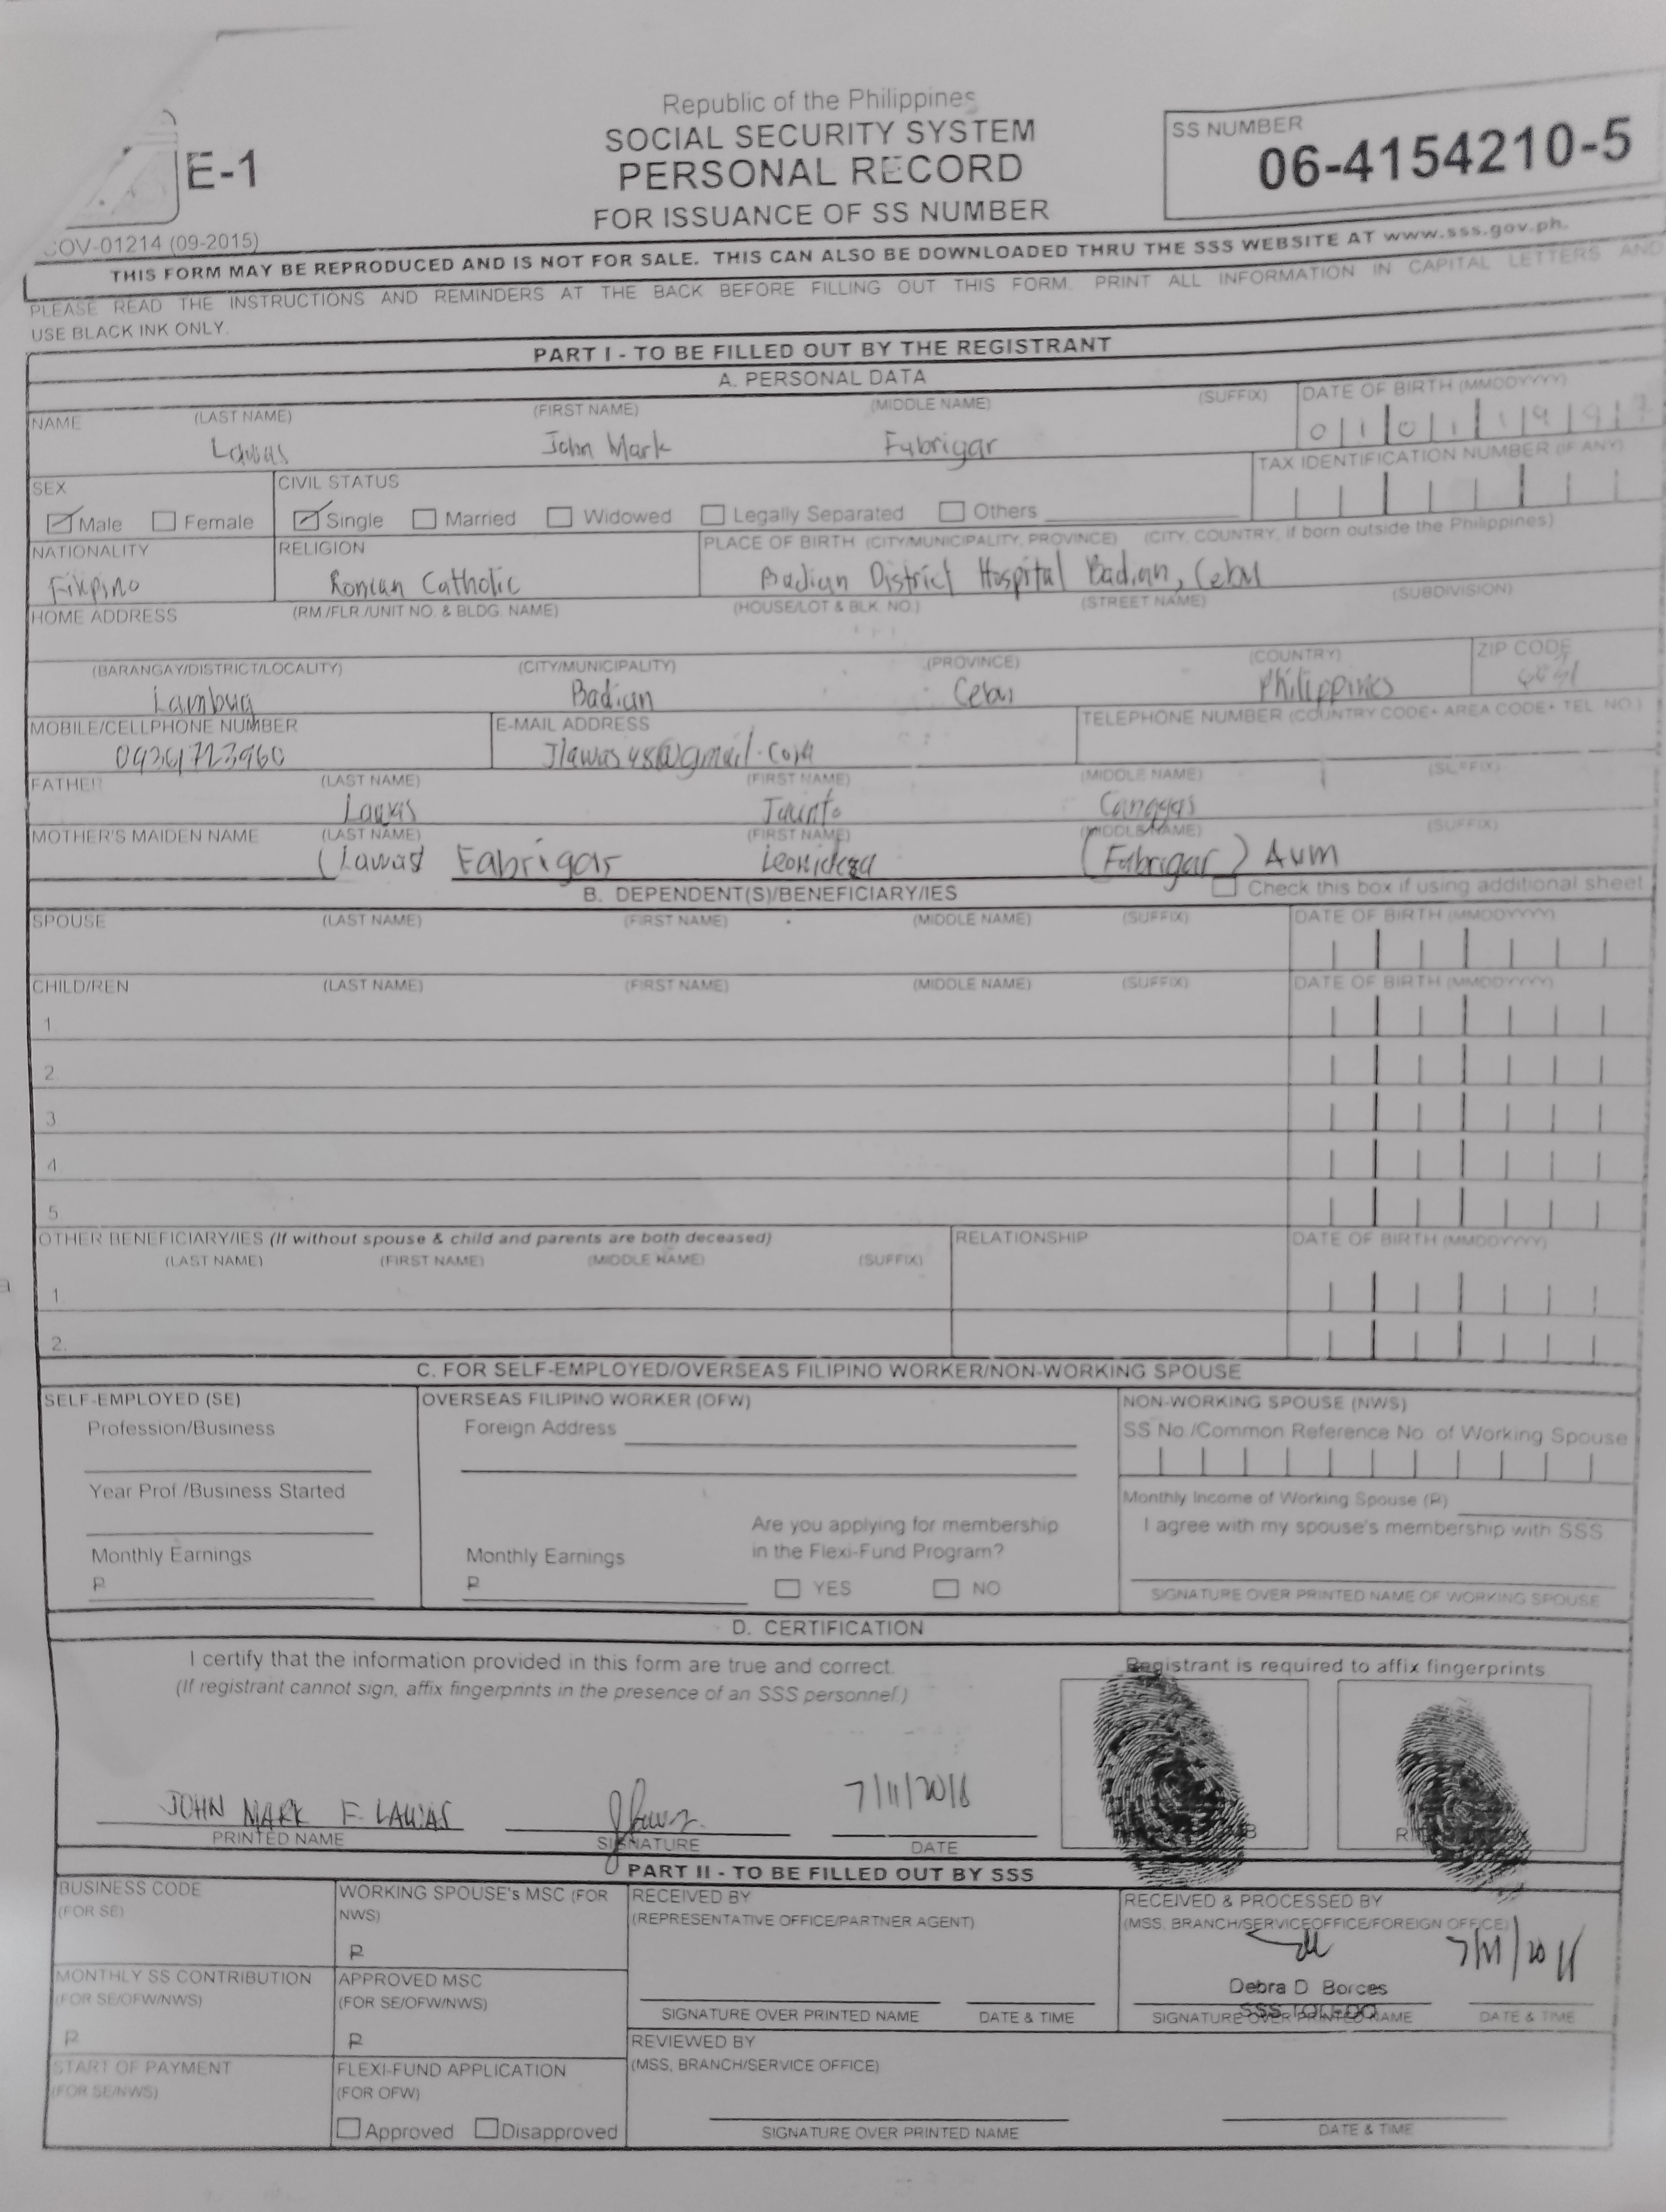 Republic of the Philippines
SOCIAL SECURITY SYSTEM
PERSONAL RECORD
FOR ISSUANCE OF SS NUMBER
E-1
SS NUMBER
06-4154210-5
COV-01214 (09-2015)
THIS FORM MAY BE REPRODUCED AND IS NOT FOR SALE. THIS CAN ALSO BE DOWNLOADED THRU THE SSS WEBSITE AT www.sss.gov.ph.
PLEASE READ THE INSTRUCTIONS AND REMINDERS AT THE BACK BEFORE FILLING OUT THIS FORM. PRINT ALL INFORMATION IN CAPITAL LETTERS AND
USE BLACK INK ONLY.
PART I - TO BE FILLED OUT BY THE REGISTRANT
A. PERSONAL DATA
NAME (LAST NAME) (FIRST NAME) (MIDDLE NAME) (SUFFIX) DATE OF BIRTH (MMDDYYYY)
Lawas John Mark Fabrigar 0 1 0 1 1 9 9
TAX IDENTIFICATION NUMBER (IF ANY)
SEX CIVIL STATUS
Male Female Single Married Widowed Legally Separated Others
NATIONALITY RELIGION PLACE OF BIRTH (CITY/MUNICIPALITY, PROVINCE) (CITY, COUNTRY, if born outside the Philippines)
Filipino Roman Catholic Badian District Hospital Badian, Cebu
HOME ADDRESS (RM./FLR./UNIT NO. & BLDG. NAME) (HOUSE/LOT & BLK. NO.) (STREET NAME) (SUBDIVISION)
(BARANGAY/DISTRICT/LOCALITY) (CITY/MUNICIPALITY) (PROVINCE) (COUNTRY) ZIP CODE
Lambug Badian Cebu Philippines
MOBILE/CELLPHONE NUMBER E-MAIL ADDRESS TELEPHONE NUMBER (COUNTRY CODE+ AREA CODE+ TEL. NO.)
09361723960 Jlawas48@gmail.com
FATHER (LAST NAME) (FIRST NAME) (MIDDLE NAME) (SUFFIX)
Lawas
MOTHER'S MAIDEN NAME (LAST NAME) (FIRST NAME) (MIDDLE NAME) (SUFFIX)
(Lawas Fabrigar (Fabrigar) Aum
B. DEPENDENT(S)/BENEFICIARY/IES Check this box if using additional sheet
SPOUSE (LAST NAME) (FIRST NAME) (MIDDLE NAME) (SUFFIX) DATE OF BIRTH (MMDDYYYY)
CHILD/REN (LAST NAME) (FIRST NAME) (MIDDLE NAME) (SUFFIX) DATE OF BIRTH (MMDDYYYY)
1.
2.
3.
4.
5.
OTHER BENEFICIARY/IES (If without spouse & child and parents are both deceased) RELATIONSHIP DATE OF BIRTH (MMDDYYYY)
(LAST NAME) (FIRST NAME) (MIDDLE NAME) (SUFFIX)
1.
2.
C. FOR SELF-EMPLOYED/OVERSEAS FILIPINO WORKER/NON-WORKING SPOUSE
SELF-EMPLOYED (SE) OVERSEAS FILIPINO WORKER (OFW) NON-WORKING SPOUSE (NWS)
Profession/Business Foreign Address SS No./Common Reference No. of Working Spouse
Year Prof./Business Started Monthly Income of Working Spouse (₱)
Are you applying for membership I agree with my spouse's membership with SSS
Monthly Earnings Monthly Earnings in the Flexi-Fund Program?
₱ ₱ YES NO SIGNATURE OVER PRINTED NAME OF WORKING SPOUSE
D. CERTIFICATION
I certify that the information provided in this form are true and correct. Registrant is required to affix fingerprints
(If registrant cannot sign, affix fingerprints in the presence of an SSS personnel.)
JOHN MARK F. LAWAS 7/11/2018
PRINTED NAME SIGNATURE DATE
PART II - TO BE FILLED OUT BY SSS
BUSINESS CODE WORKING SPOUSE's MSC (FOR RECEIVED BY RECEIVED & PROCESSED BY
(FOR SE) NWS) (REPRESENTATIVE OFFICE/PARTNER AGENT) (MSS, BRANCH/SERVICE OFFICE/FOREIGN OFFICE)
₱
MONTHLY SS CONTRIBUTION APPROVED MSC Debra D Borces
(FOR SE/OFW/NWS) (FOR SE/OFW/NWS) SSS TOLEDO
SIGNATURE OVER PRINTED NAME DATE & TIME SIGNATURE OVER PRINTED NAME DATE & TIME
₱ ₱ REVIEWED BY
START OF PAYMENT FLEXI-FUND APPLICATION (MSS, BRANCH/SERVICE OFFICE)
(FOR SE/NWS) (FOR OFW)
Approved Disapproved SIGNATURE OVER PRINTED NAME DATE & TIME